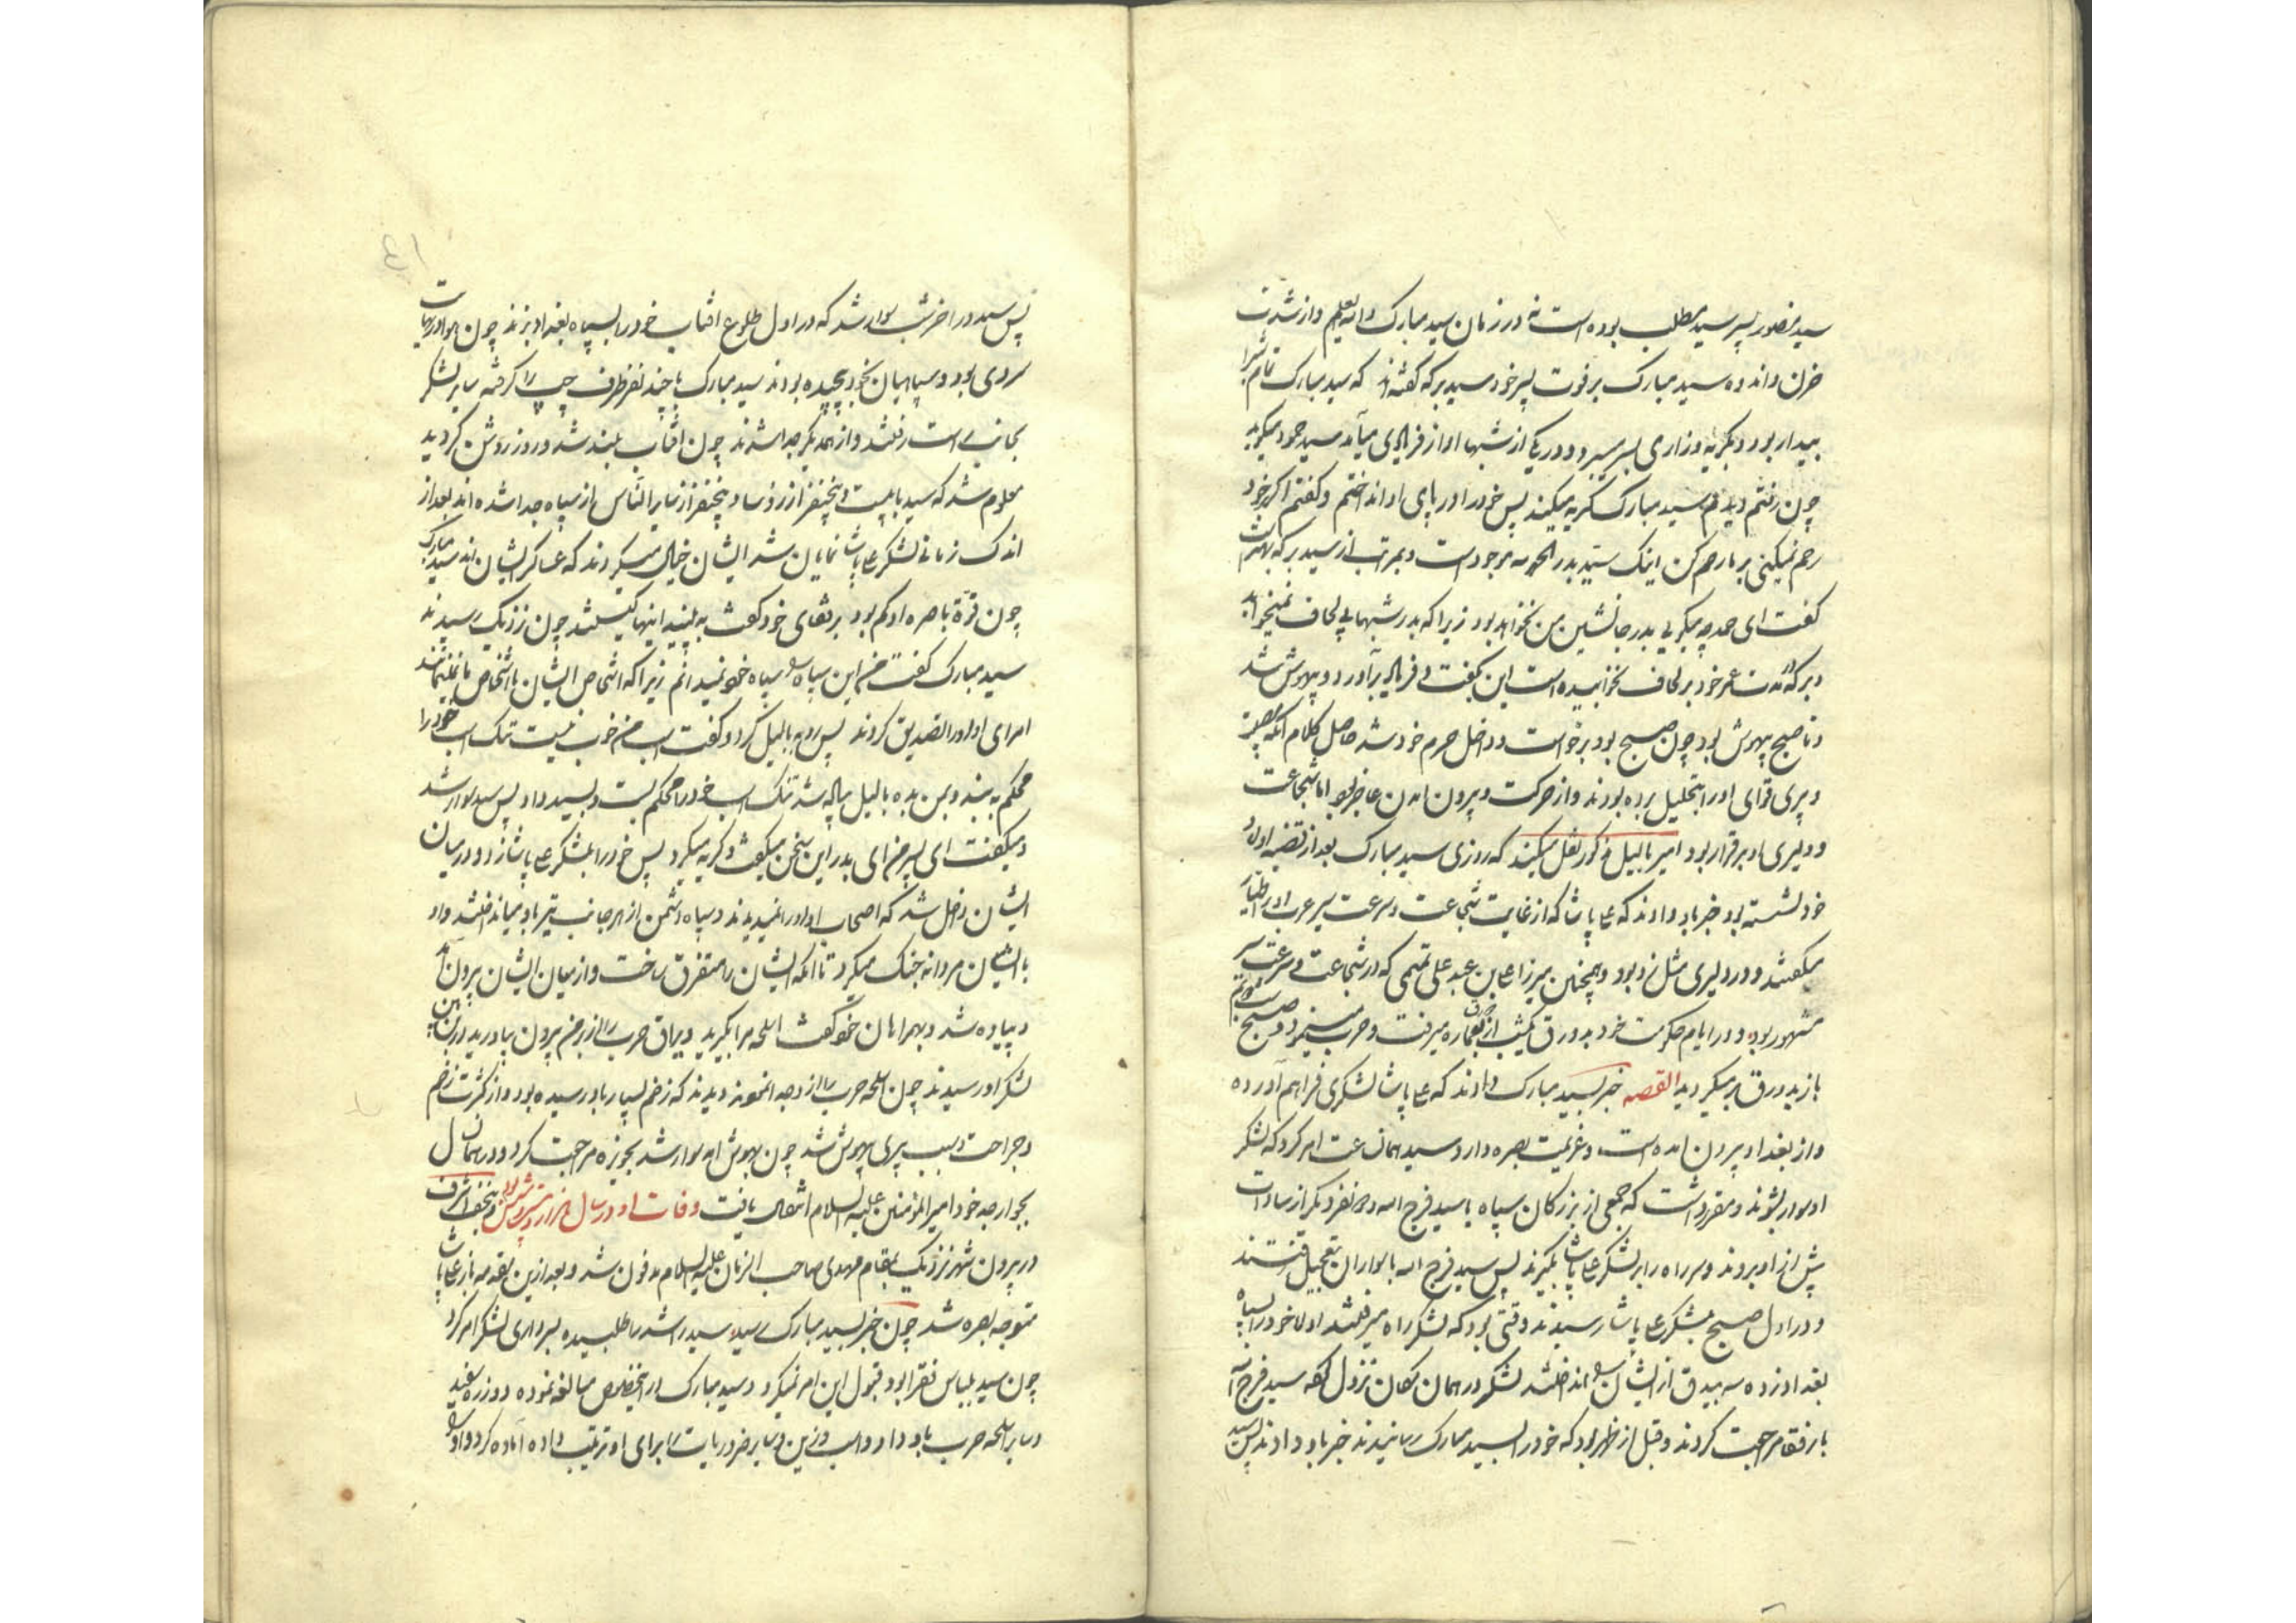 سید منصور پسر سید مطلب بوده است نه در زمان سید مبارک والله یعلم و از شدت
حزن و اندوه سید مبارک بر فوت پسر خود سید برکه گفته‌اند که سید مبارک تمام شب را
بیدار بود و بگریه و زاری بسر میبرد و در یکی از شبها آواز فریادی میآمد سید حمود میگوید
چون رفتم دیدم سید مبارک گریه میکند پس خود را در پای او انداختم و گفتم اگر بر خود
رحم نمیکنی بر ما رحم کن اینک سید بدر الحمد لله موجود است و بمراتب از سید برکه بهتر است
گفت ای حمد چه میگویی بدر جانشین من نخواهد بود زیرا که بدر شبها بی لحاف نمیخوابد
و برکه مدت عمر خود بر لحاف نخوابیده است این بگفت و فریاد برآورد و بیهوش شد
و تا صبح بیهوش بود چون صبح بود برخواست و داخل حرم خود شد حاصل کلام آنکه مصیبت
و پیری قوای او را بتحلیل برده بودند و از حرکت و بیرون آمدن عاجز بود اما شجاعت
و دلیری او برقرار بود امیر بالیل مذکور نقل میکند که روزی سید مبارک بعد از قضیه اولاد
خود نشسته بود خبر باو دادند که علی پاشا که از غایت شجاعت و سرعت سیر عرب او را طیار
میگفتند و در دلیری مثل نبود و همچنین میرزا علی بن عبد علی تمیمی که در شجاعت و سرعت سیر
مشهور بود و در ایام حکومت خود بدورق یکشب از عماره میرفت و حرب مینمود و صبح
باز بدورق بر میگردید القصه خبر بسید مبارک دادند که علی پاشا لشکری فراهم آورده
و از بغداد بیرون آمده است و عزیمت بصره دارد و سید همان ساعت امر کرد که لشکر
او سوار بشوند و مقرر داشت که جمعی از بزرگان سپاه با سید فرج الله و ده نفر دیگر از سادات
پیش از او بروند و سر راه را بر لشکر علی پاشا بگیرند پس سید فرج الله با سواران بتعجیل رفتند
و در اول صبح بلشکر علی پاشا رسیدند وقتی بود که لشکر راه میرفتند اولا خود را بسپاه
بغداد زده سه بیدق از ایشان را انداختند لشکر در همان مکان نزول کرده سید فرج الله
با رفقا مراجعت کردند و قبل از ظهر بود که خود را بسید مبارک رسانیدند خبر باو دادند پس سید
پس سید در آخر شب سوار شد که در اول طلوع آفتاب خود را بسپاه بغداد بزند چون هوا در نهایت
سردی بود و سپاهیان بخود پیچیده بودند سید مبارک با چند نفر طرف چپ را گرفته سایر لشکر
بجانب راست رفتند و از همدیگر جدا شدند چون آفتاب بلند شد و روز روشن گردید
معلوم شد که سید با بیست و پنج نفر از رؤسا و پنج نفر از سایر الناس از سپاه جدا شده‌اند بعد از
اندک زمانی لشکر علی پاشا نمایان شد ایشان خیال میکردند که عساکر ایشان‌اند سید مبارک
چون قوّة باصره او کم بود برفقای خود گفت به بینید اینها کیستند چون نزدیک رسیدند
سید مبارک گفت من این سپاه را سپاه خود نمیدانم زیرا که اشخاص ایشان باشخاص ما نمیمانند
امرای او او را تصدیق کردند پس رو به بالیل کرد و گفت اسب من خوب نیست تنگ اسب خود را
محکم به بند و بمن بده بالیل پیاده شد تنگ اسب خود را محکم بست و بسید داد پس سید سوار شد
و میگفت ای پسر من ای بدر این سخن میگفت و گریه میکرد پس خود را بلشکر علی پاشا زد و در میان
ایشان داخل شد که اصحاب او او را نمیدیدند و سپاه دشمن از هر جانب تیر باو میانداختند و او
با ایشان مردانه جنگ میکرد تا آنکه ایشان را متفرق ساخت و از میان ایشان بیرون آمد
و پیاده شد و بهمراهان خود گفت اسلحه مرا بگیرید و یراق حرب را از بر من بیرون بیاورید در این بین
لشکر او رسیدند چون اسلحه حرب را از وجود او نمودند دیدند که زخم بسیار باو رسیده بود و از کثرت زخم
و جراحت و سبب پیری بیهوش شد چون بهوش آمد سوار شد بحویزه مراجعت کرد و در همان سال
بجوار جد خود امیر المؤمنین علیه السلام انتقال یافت وفات او در سال هزار و بیست و شش بود و در نجف اشرف
در بیرون شهر نزدیک بمقام مهدی صاحب الزمان علیه السلام مدفون شد و بعد از این مقدمه باز علی پاشا
متوجه بصره شد چون خبر بسید مبارک رسید سید راشد را طلبیده بسرداری لشکر امر کرد
چون سید بلباس فقرا بود قبول این امر نمیکرد و سید مبارک در اینخصوص مبالغه نموده دو زره سفید
و سایر اسلحه حرب باو داد و اسب و زین و سایر ضروریات را برای او ترتیب داده آماده کرد و او را